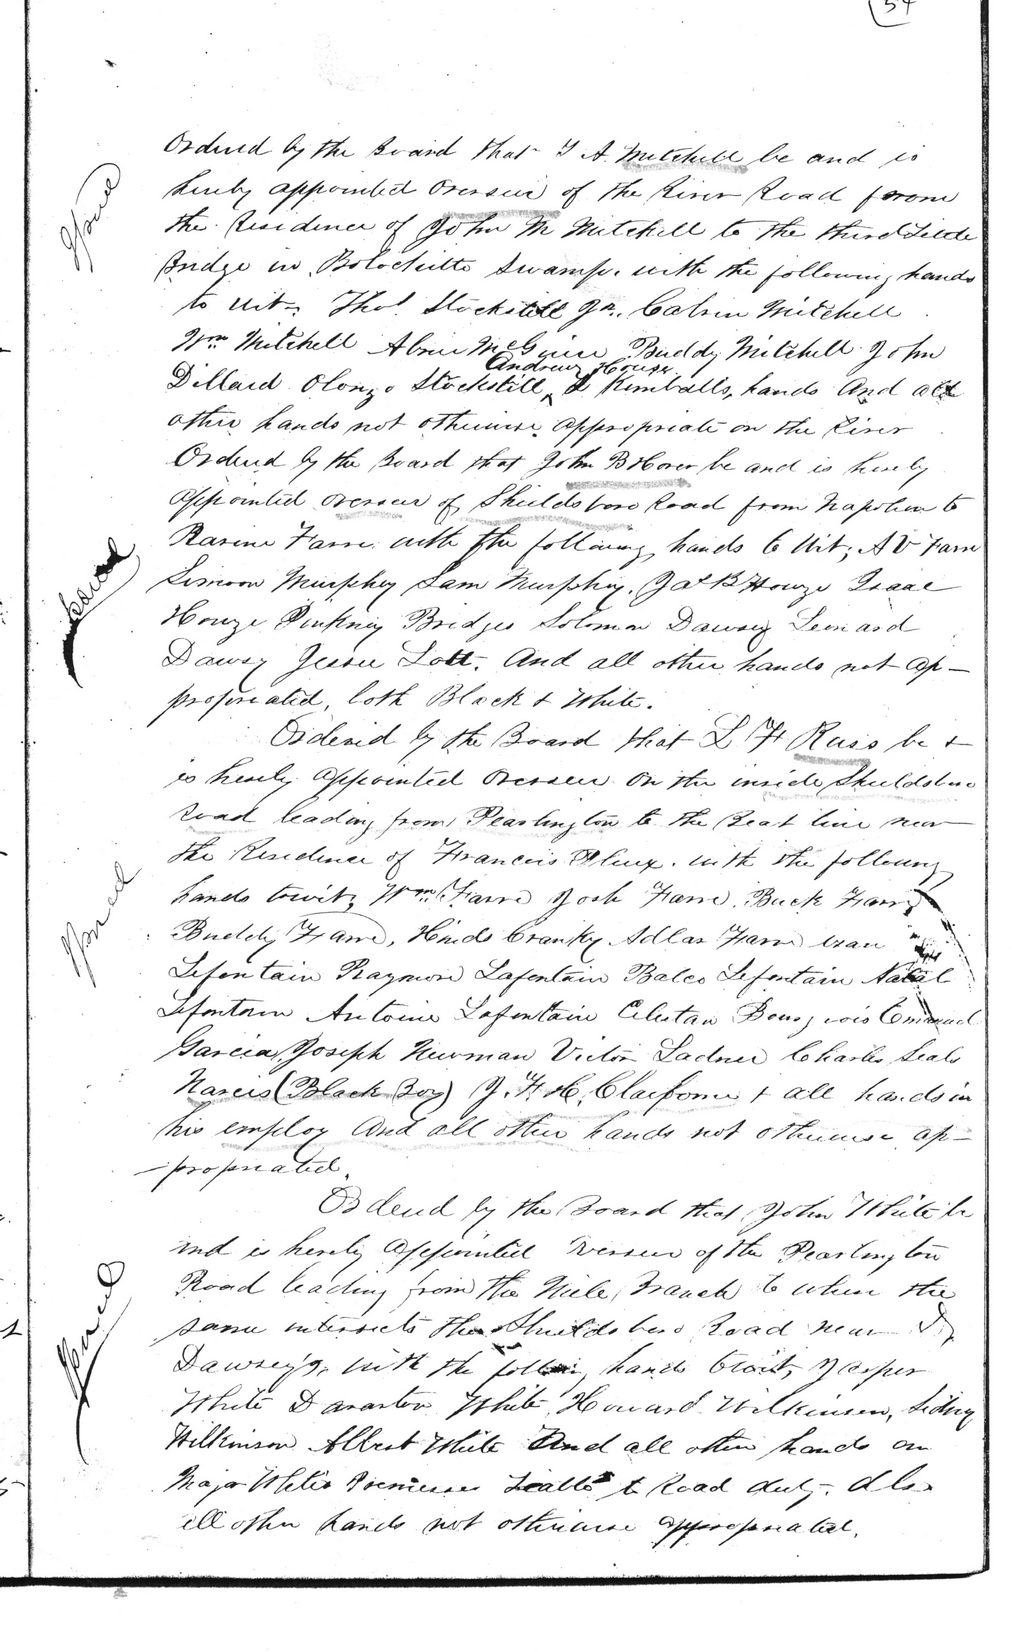 54
Ordered by the Board that J A Mitchell be and is
hereby appointed Overseer of the River Road from
the Residence of John M Mitchell to the third Little
Bridge in Bolochitto Swamp. with the following hands
to wit, Thos Stockstill Jr. Calvin Mitchell
Wm Mitchell Abner McGuire Buddy Mitchell John
Andrew House
Dillard Olonzo Stockstill, & Kimballs, hands And all
other hands not otherwise appropriate on the River
Ordered by the Board that John B Hover be and is hereby
appointed overseer of Shieldsboro Road from Napoleon to
Ravine Farre with the following hands to Wit; A V Farre
Simoon Murphey Sam Murphy. Jas B Howze Isaac
Howze Pinkney Bridges Solomon Dawsey Leonard
Dawsy Jessee Lott. And all other hands not ap-
propriated, both Black & White.
Ordered by the Board that L H Russ be &
is hereby appointed Overseer on the inside Shieldsboro
Road leading from Pearlington to the Beat line near
the Residence of Francois with the following
hands towit; Wm Farre Josh Farre. Buck Farre
Buddy Farre, Hinds Cranky Adlar Farre
Lefontain Raymon Lafontain Balco Lefontain Natal
Lefontain Antoine Lafontain Celestan Bourjeois Emanuel
Garcia, Joseph Newman Victor Ladner Charles Seals
Narcis (Black Boy) J. F. H. Claiborne & all hands in
his employ And all other hands not otherwise ap-
-propriated.
Ordered by the Board that John White be
and is hereby appointed Overseer of the Pearlington
Road leading from the Mile Branch to where the
same intersects the Shieldsboro Road near
Dawsey's, with the following hands towit, Jasper
White Daraston White, Howard Wilkinson, Sidney
Wilkinson Albert White And all other hands on
Major Whites Premises Liable to Road duty. Also
all other hands not otherwise appropriated.
Issued
Issued
Issued
Issued